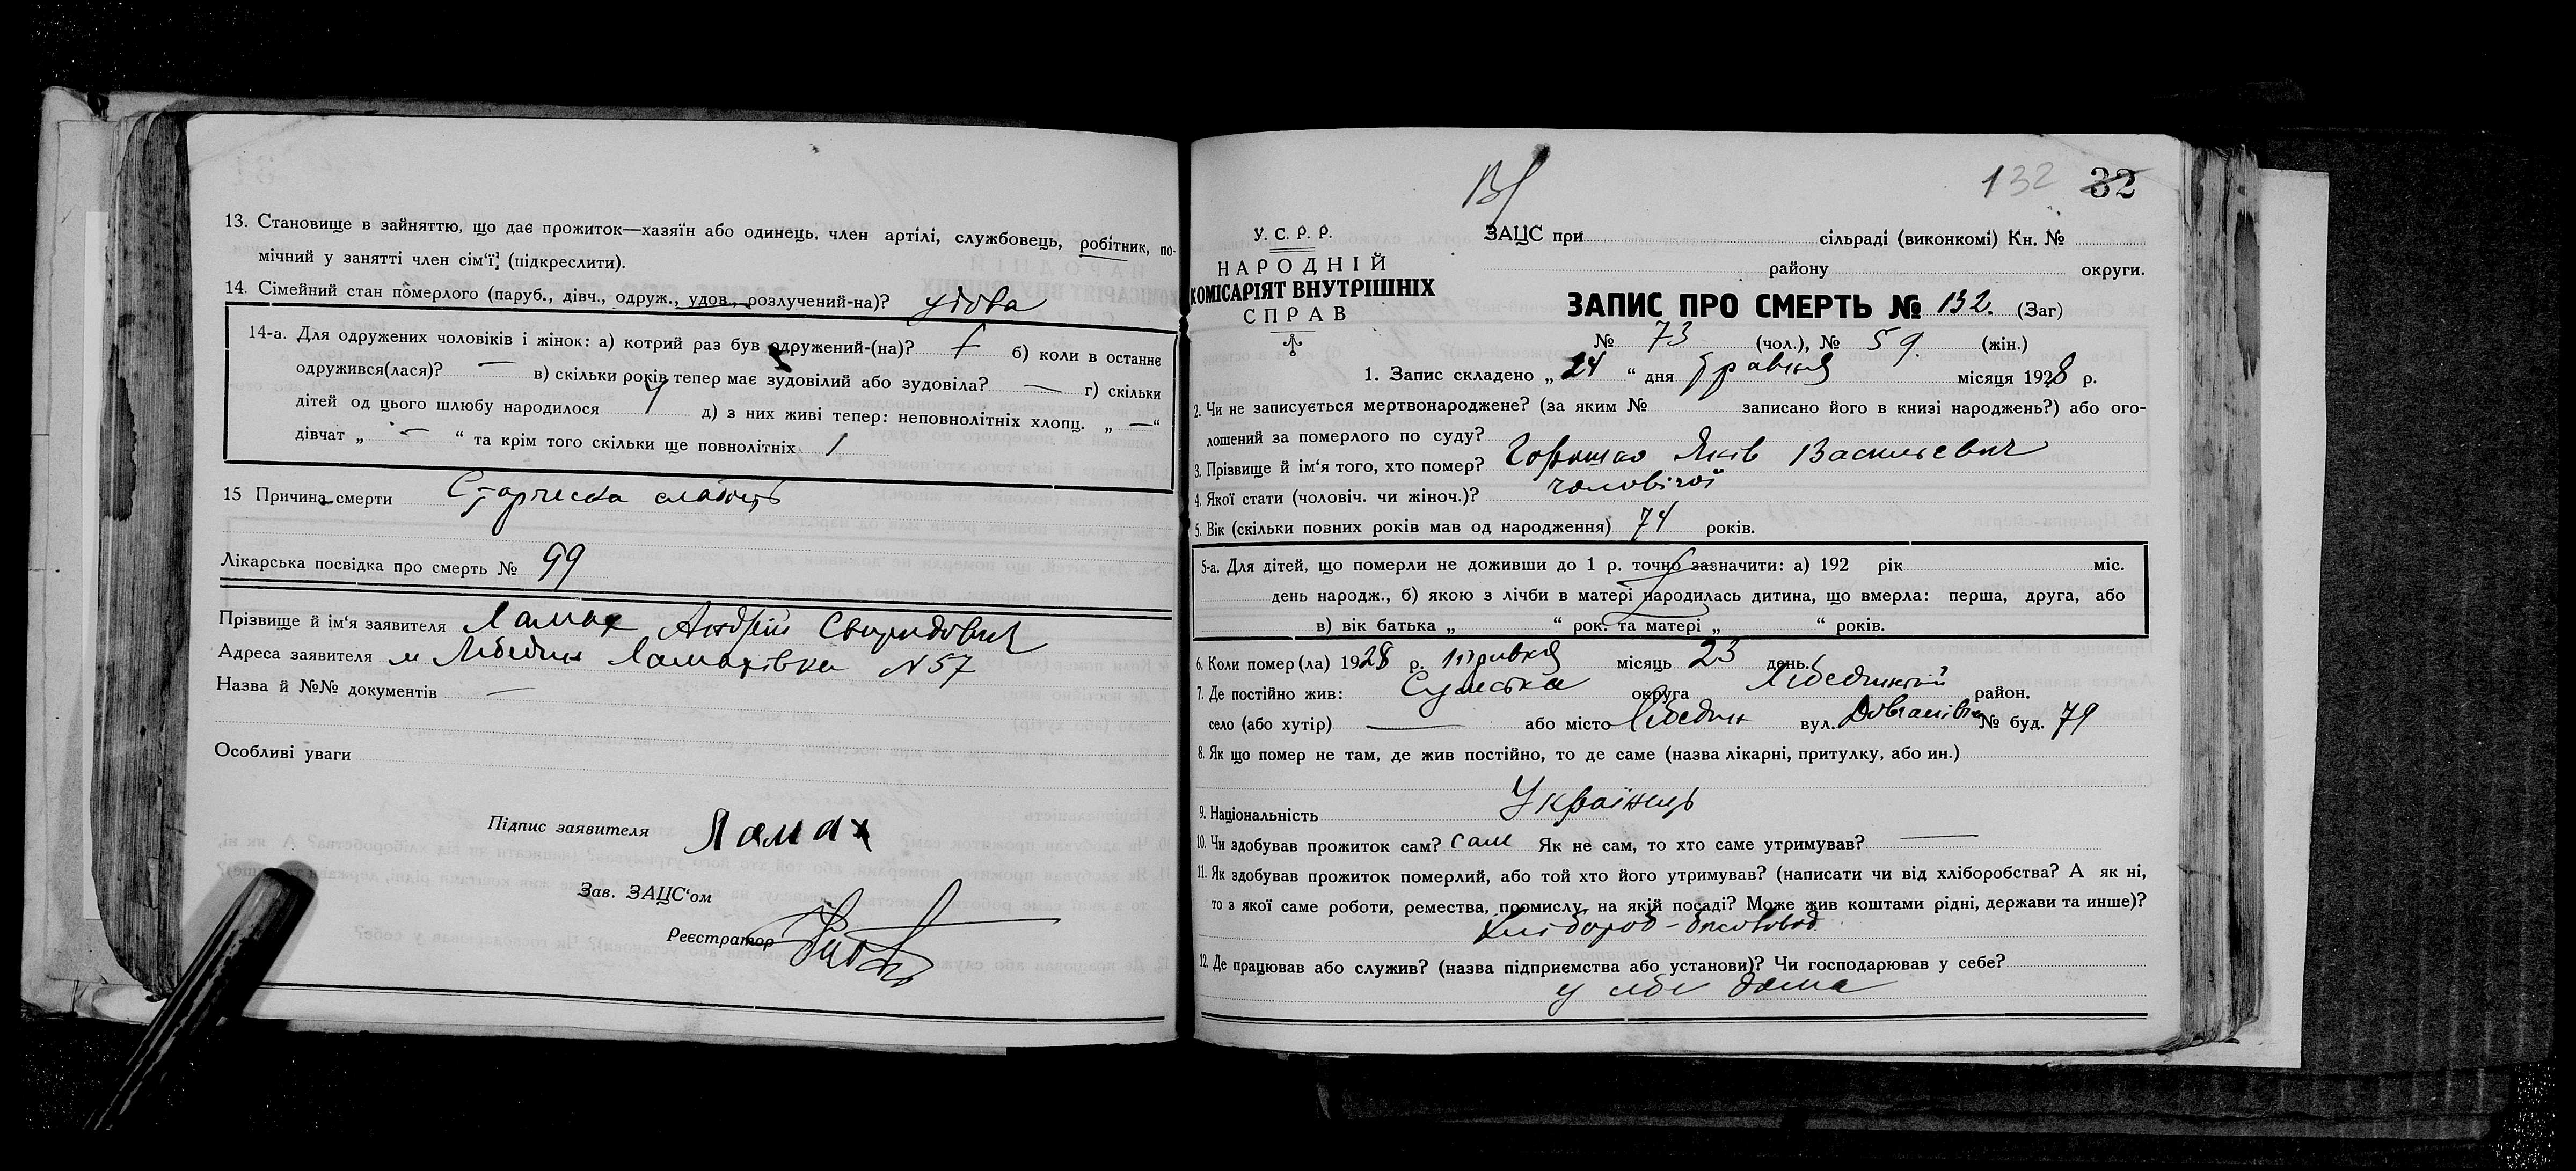 13. Становище в зайняттю, що дає прожиток—хазяїн або одинець, член артілі, службовець, робітник, по-
мічний у занятті член сім'ї, (підкреслити).
14. Сімейний стан померлого (паруб., дівч., одруж., удов., розлучений-на)? удова
14-а. Для одружених чоловіків і жінок: а) котрий раз був одружений-(на)? б) коли в останнє
одружився(лася)? — в) скільки років тепер має зудовілий або зудовіла? — г) скільки
дітей од цього шлюбу народилося 4 д) з них живі тепер: неповнолітніх хлопц. „ —“
дівчат „ — “ та крім того скільки ще повнолітніх 1
15 Причина смерти Старческа слабость
Лікарська посвідка про смерть № 99
Прізвище й ім'я заявителя Ламах Андрій Свиридович
Адреса заявителя м Лебедин Ламахівка N 57
Назва й №№ документів —
Особливі уваги
Підпис заявителя Ламах
Зав. ЗАЦС'ом
Реєстратор
132 32
У. С. Р. Р.
НАРОДНІЙ
КОМІСАРІЯТ ВНУТРІШНІХ
СПРАВ
ЗАЦС при сільраді (виконкомі) Кн. №
району округи.
ЗАПИС ПРО СМЕРТЬ № 132. (Заг)
№ 73 (чол.), № 59. (жін.)
1. Запис складено „ 24 “ дня травня місяця 1928 р.
2. Чи не записується мертвонароджене? (за яким № записано його в книзі народжень?) або ого-
лошений за померлого по суду?
3. Прізвище й ім'я того, хто помер? Яків Васильевич
4. Якої стати (чоловіч. чи жіноч.)? чоловічої
5. Вік (скільки повних років мав од народження) 74 років.
5-а. Для дітей, що померли не доживши до 1 р. точно зазначити: а) 192 рік міс.
день народж., б) якою з лічби в матері народилась дитина, що вмерла: перша, друга, або
в) вік батька „ “ рок. та матері „ “ років.
6. Коли помер(ла) 1928 р. травня місяць 23 день.
7. Де постійно жив: Сумська округа Лебединский район.
село (або хутір) — або місто Лебедин вул. № буд. 79
8. Як що помер не там, де жив постійно, то де саме (назва лікарні, притулку, або ин.)
9. Національність Українець
10. Чи здобував прожиток сам? сам Як не сам, то хто саме утримував? —
11. Як здобував прожиток померлий, або той хто його утримував? (написати чи від хліборобства? А як ні,
то з якої саме роботи, ремества, промислу, на якій посаді? Може жив коштами рідні, держави та инше)?
Хлібороб-
12. Де працював або служив? (назва підприємства або установи)? Чи господарював у себе?
у себе дома